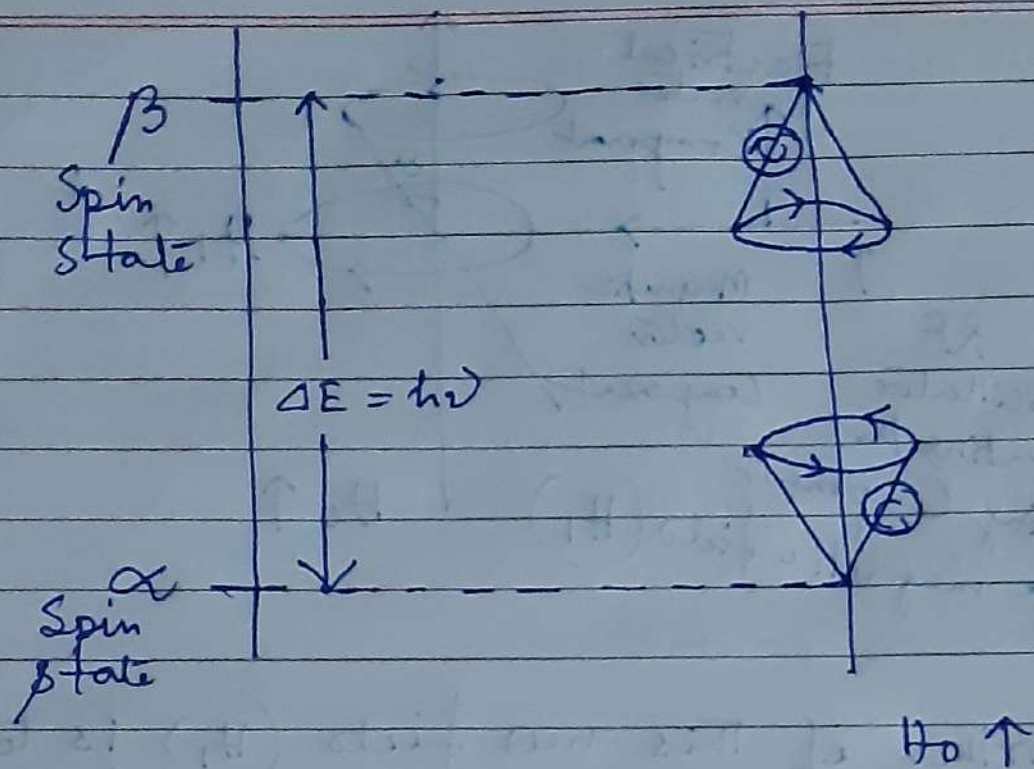 β
Spin
state
ΔE = hν
α
Spin
state
H₀ ↑